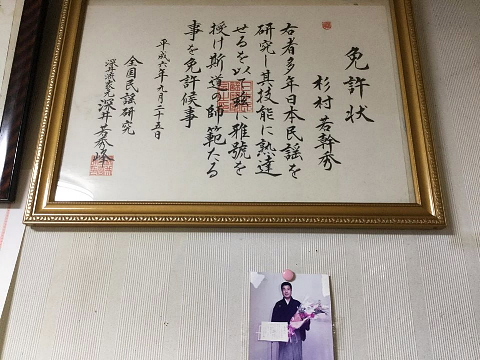 免許状
杉村若幹秀
右者多年日本民謡を
研究し其技能に熟達
せるを以て茲に雅號を
授け斯道の師範たる
事を免許候事
平成六年九月二十五日
全国民謡研究
深井芳秀峰